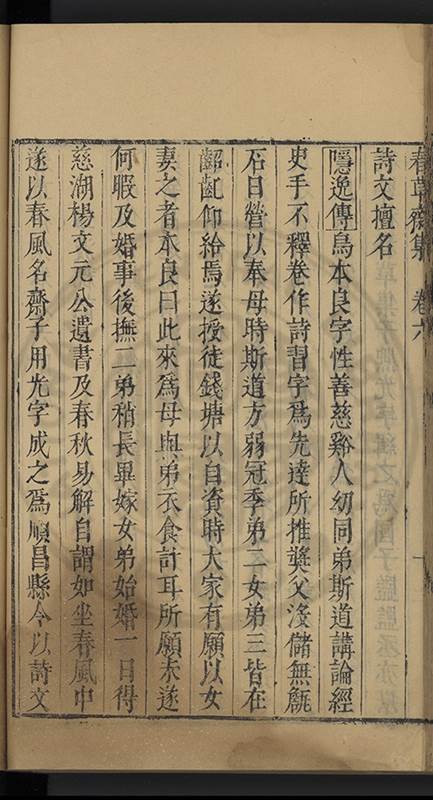 春草齋集 卷六
詩文擅名
隱逸傳烏本良字性善慈谿人幼同弟斯道講論經
史手不釋卷作詩習字爲先達所推奬父沒儲無甔
石日營以奉母時斯道方弱冠季弟二女弟三皆在
齠齔仰給焉遂授徒錢塘以自資時大家有願以女
妻之者本良曰此來爲母與弟衣食計耳所願未遂
何暇及婚事後撫二弟稍長畢嫁女弟始婚一日得
慈湖楊文元公遺書及春秋易解自謂如坐春風中
遂以春風名齋子用光字成之爲順昌縣令以詩文